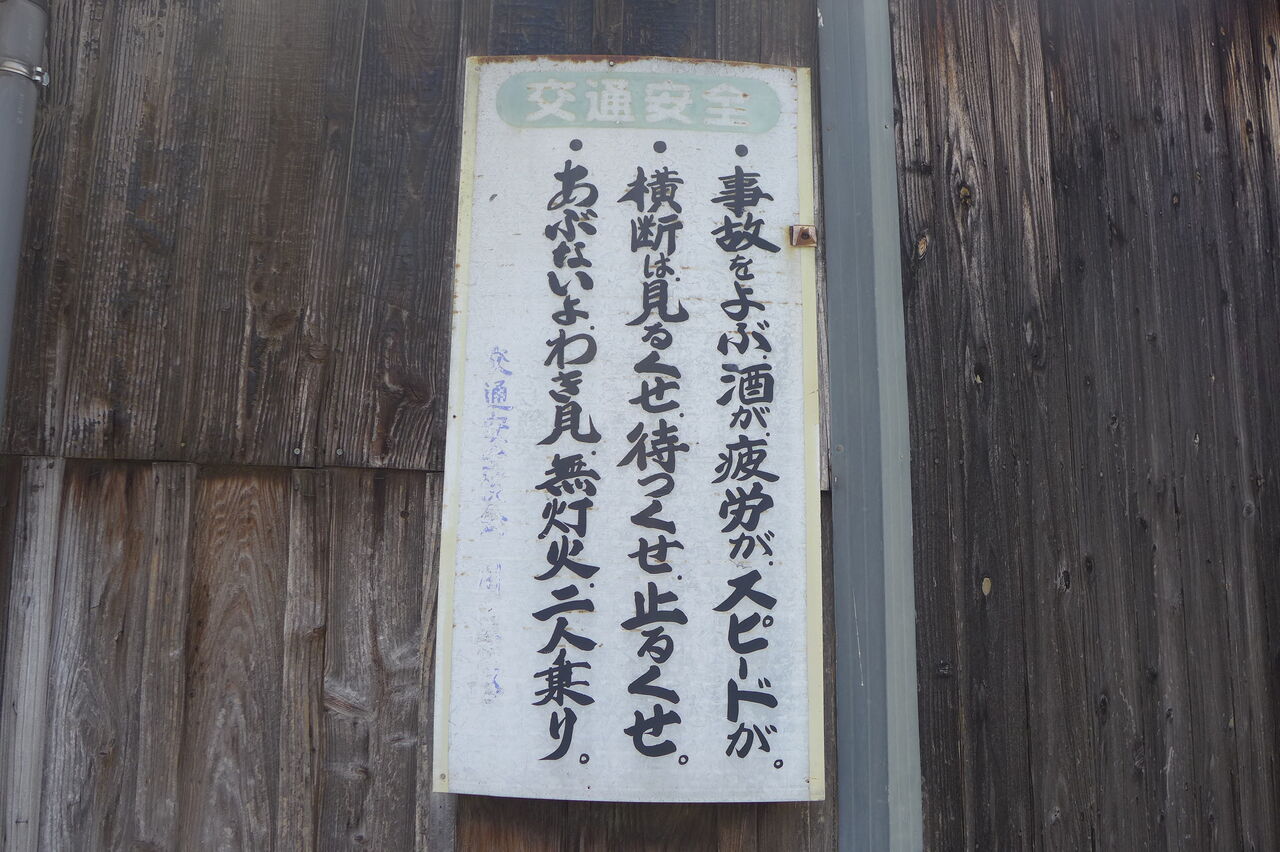 交通安全
・事故をよぶ.酒が.疲労が.スピードが。
・横断は.見るくせ.待つくせ.止るくせ。
・あぶないよ.わき見.無灯火.二人乗り。
交通安全